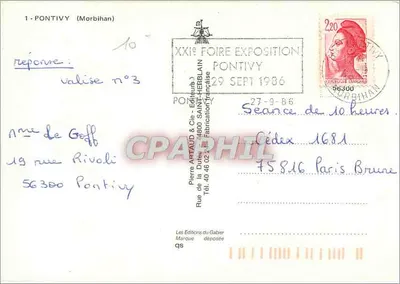 1 - PONTIVY (Morbihan)
10
réponse :
valise n°3
Mme de Goff
19 rue Rivoli
56300 Pontivy
XXIe FOIRE EXPOSITION
PONTIVY
29 SEPT 1986
PONTIVY 27-9-86
2,20
PONTIVY
56300
MORBIHAN
Pierre ARTAUD & Cie - Editeurs
44800 SAINT-HERBLAIN
Fabrication française
CPAPHIL
Séance de 10 heures
Cédex 1681
75816 Paris Brune
Les Editions du Gabier
Marque déposée